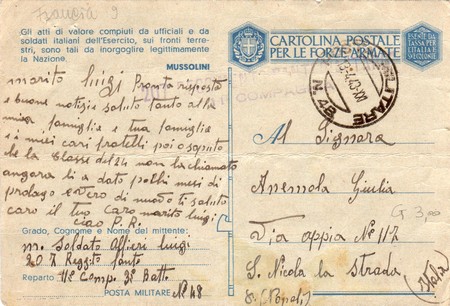 Francia 9
Gli atti di valore compiuti da ufficiali e da
soldati italiani dell'Esercito, sui fronti terre-
stri, sono tali da inorgoglire legittimamente
la Nazione.
MUSSOLINI
marito luigi Pronta risposta
e buone notizie saluto tanto alla
mia famiglia e tua famiglia
e i miei cari fratelli poi o saputo
che la Classe del 24 non la chiamato
angora li a dato pochi mesi di
prolago entro di nuovo ti saluto
caro il tuo Caro marito luigi
ciao P. R.
Grado, Cognome e Nome del mittente:
m. Soldato Affieri luigi
207 Reggito fanto
Reparto 11° Comp. 3° Batt.
POSTA MILITARE N° 48
CARTOLINA POSTALE
PER LE FORZE ARMATE
ESENTE DA
TASSA PER
L'ITALIA
MILITARE
N. 48
COMPAGNIA
Al Signara
Anemola Giulia
G 3,00
Via appia N° 117
S. Nicola la Strada.
(Italia)